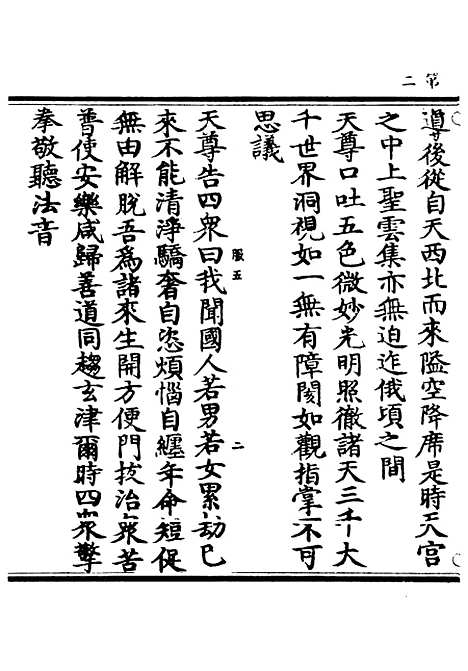 第二
導後從自天西北而來隘空降席是時天宮
之中上聖雲集亦無迫迮俄頃之間
天尊口吐五色微妙光明照徹諸天三千大
千世界洞視如一無有障閡如觀指掌不可
思議
服五 二
天尊告四衆曰我聞國人若男若女累劫已
來不能清淨驕奢自恣煩惱自纏年命短促
無由解脫吾為諸來生開方便門拔治衆苦
普使安樂咸歸善道同趨玄津爾時四衆擎
拳敬聽法音